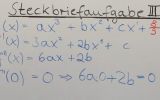 Steckbriefaufgabe III
(x) = ax³ + bx² + cx +
'(x) = 3ax² + 2bx + c
"(x) = 6ax + 2b
"(0) = 0 ⇒ 6a0+2b=0